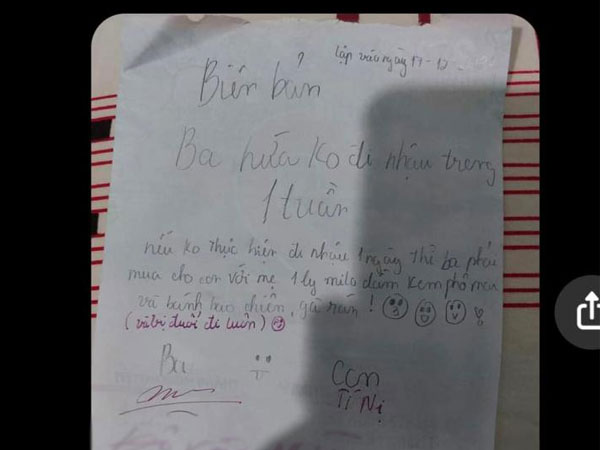 lập vào ngày 17-10
Biên bản
Ba hứa ko đi nhậu trong
1 tuần
nếu ko thực hiện đi nhậu 1 ngày thì ba phải
mua cho con với mẹ 1 ly milo dầm kem phô mai
và bánh bao chiên, gà rán!
(và bị đuổi đi luôn)
Ba
Con
Tí Nị